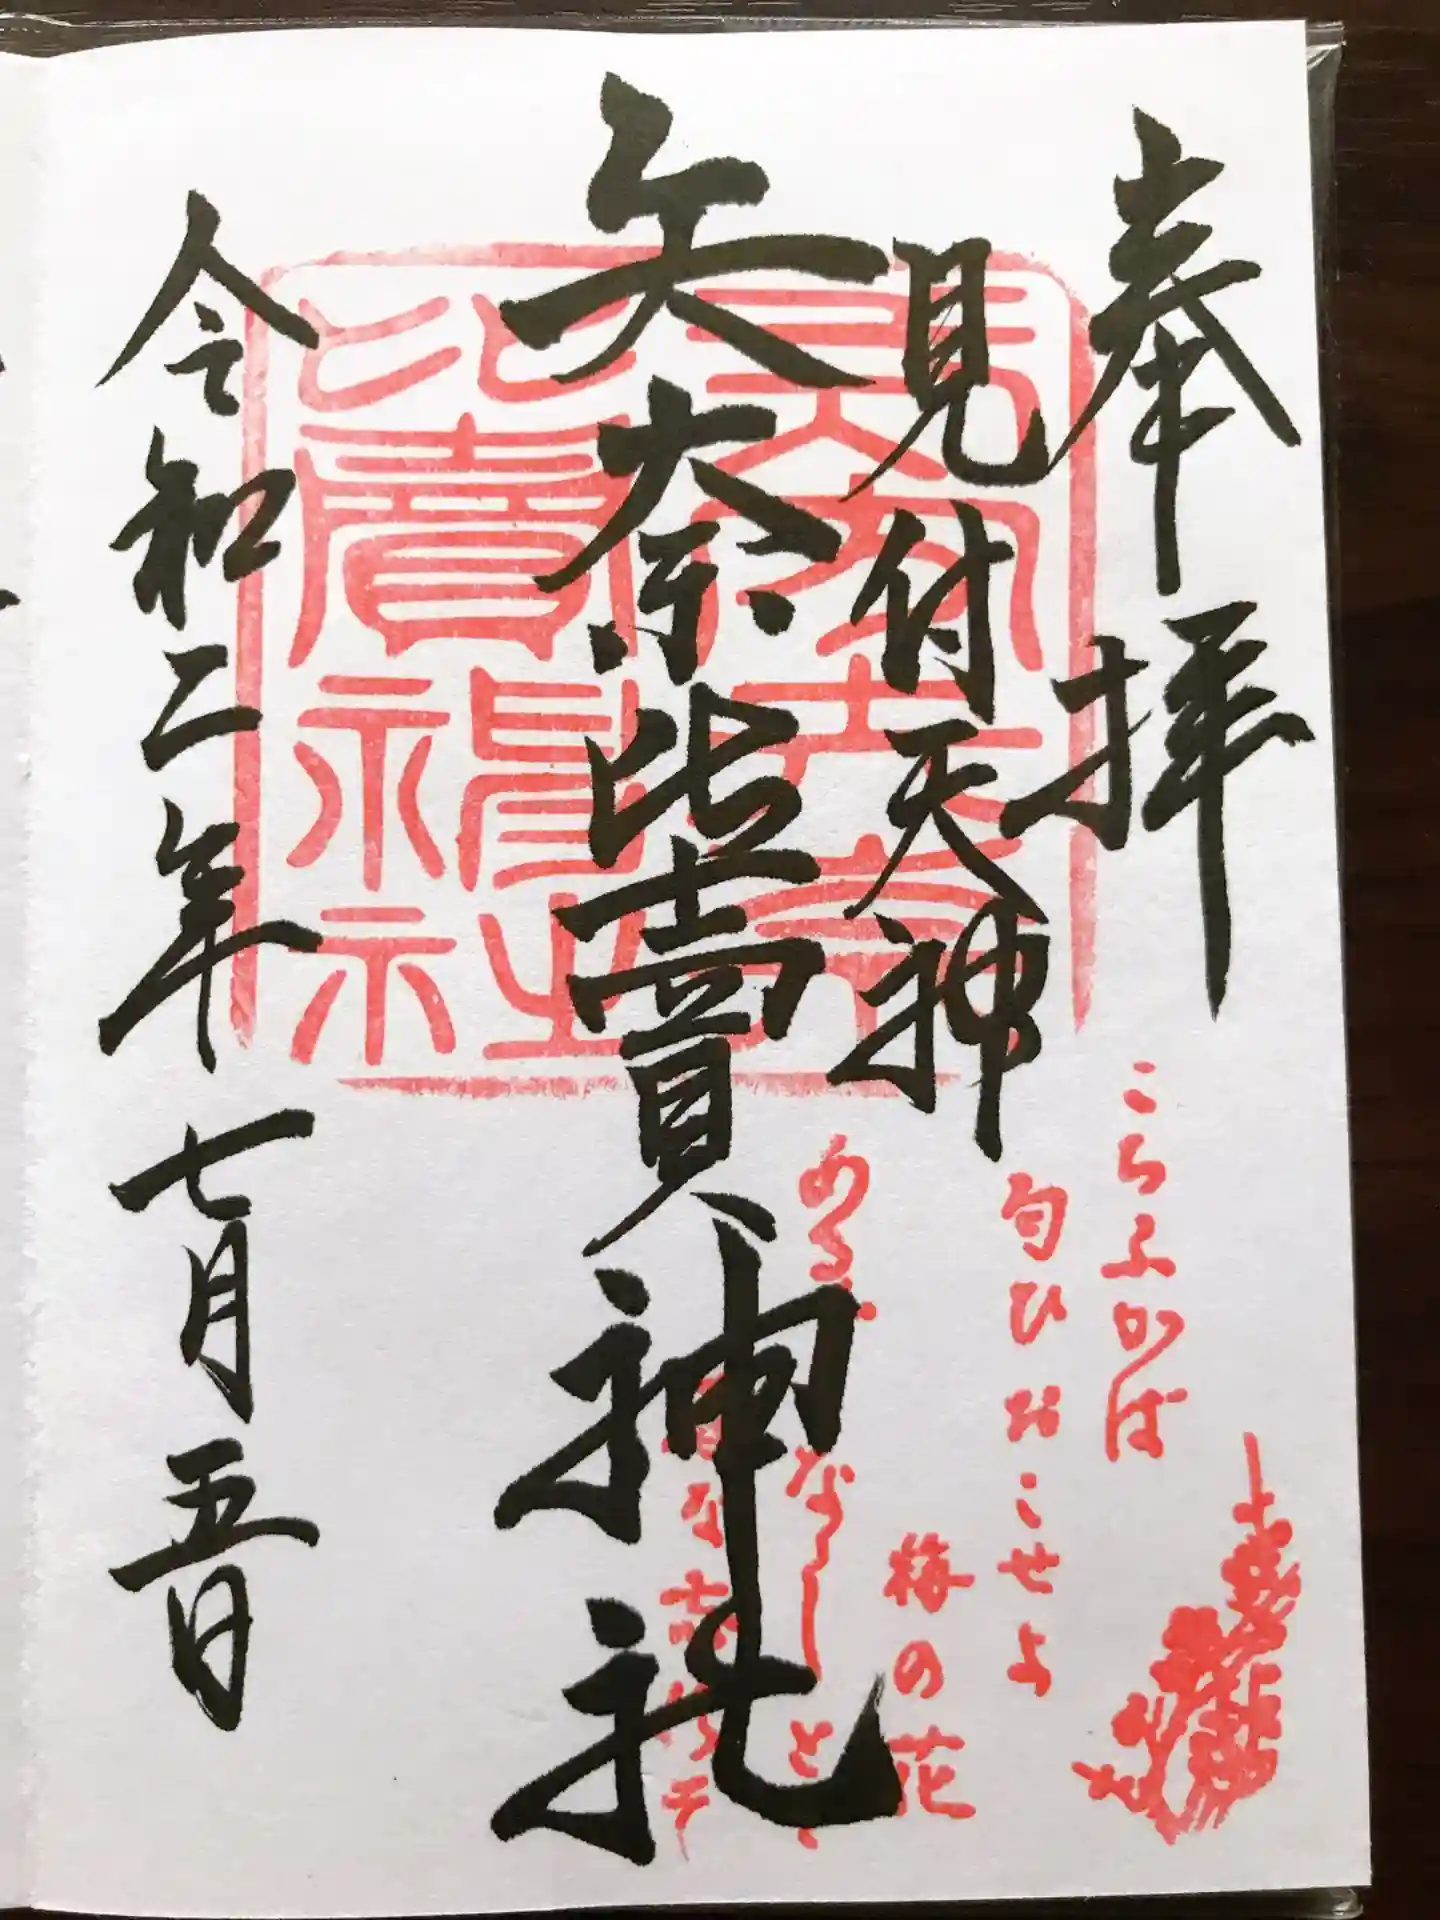 奉拝
見付天神
矢奈比賣神社
令和二年七月五日
こちふかば
匂ひおこせよ
梅の花
あるじなしとて
春な忘れそ